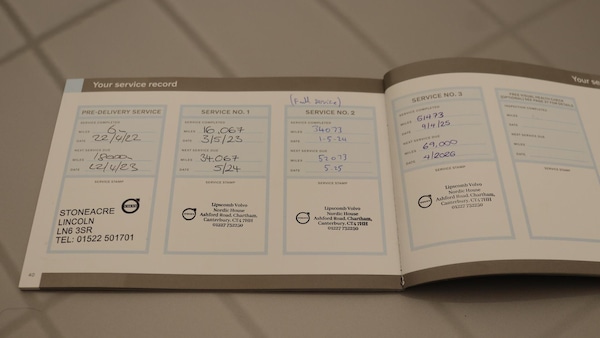 Your service record
Your se
PRE-DELIVERY SERVICE
SERVICE COMPLETED
MILES
DATE 22/4/22
NEXT SERVICE DUE
MILES
DATE 22/4/23
SERVICE STAMP
STONEACRE
LINCOLN
LN6 3SR
TEL: 01522 501701
SERVICE NO. 1
SERVICE COMPLETED
MILES 16,067
DATE 3/5/23
NEXT SERVICE DUE
MILES 34,067
DATE 5/24
SERVICE STAMP
VOLVO
Lipscomb Volvo
Nordic House
Ashford Road, Chartham,
Canterbury, CT4 7HH
01227 732720
(Full service)
SERVICE NO. 2
SERVICE COMPLETED
MILES
DATE 1.5.24
NEXT SERVICE DUE
MILES
DATE 5.25
SERVICE STAMP
VOLVO
Lipscomb Volvo
Nordic House
Ashford Road, Chartham,
Canterbury, CT4 7HH
01227 732720
SERVICE NO. 3
SERVICE COMPLETED
MILES 51473
DATE 9/4/25
NEXT SERVICE DUE
MILES 69,000
DATE 4/2026
SERVICE STAMP
VOLVO
Lipscomb Volvo
Nordic House
Ashford Road, Chartham,
Canterbury, CT4 7HH
01227 732720
SERVICE COMPLETED
MILES
DATE
NEXT SERVICE DUE
MILES
DATE
SERVICE STAMP